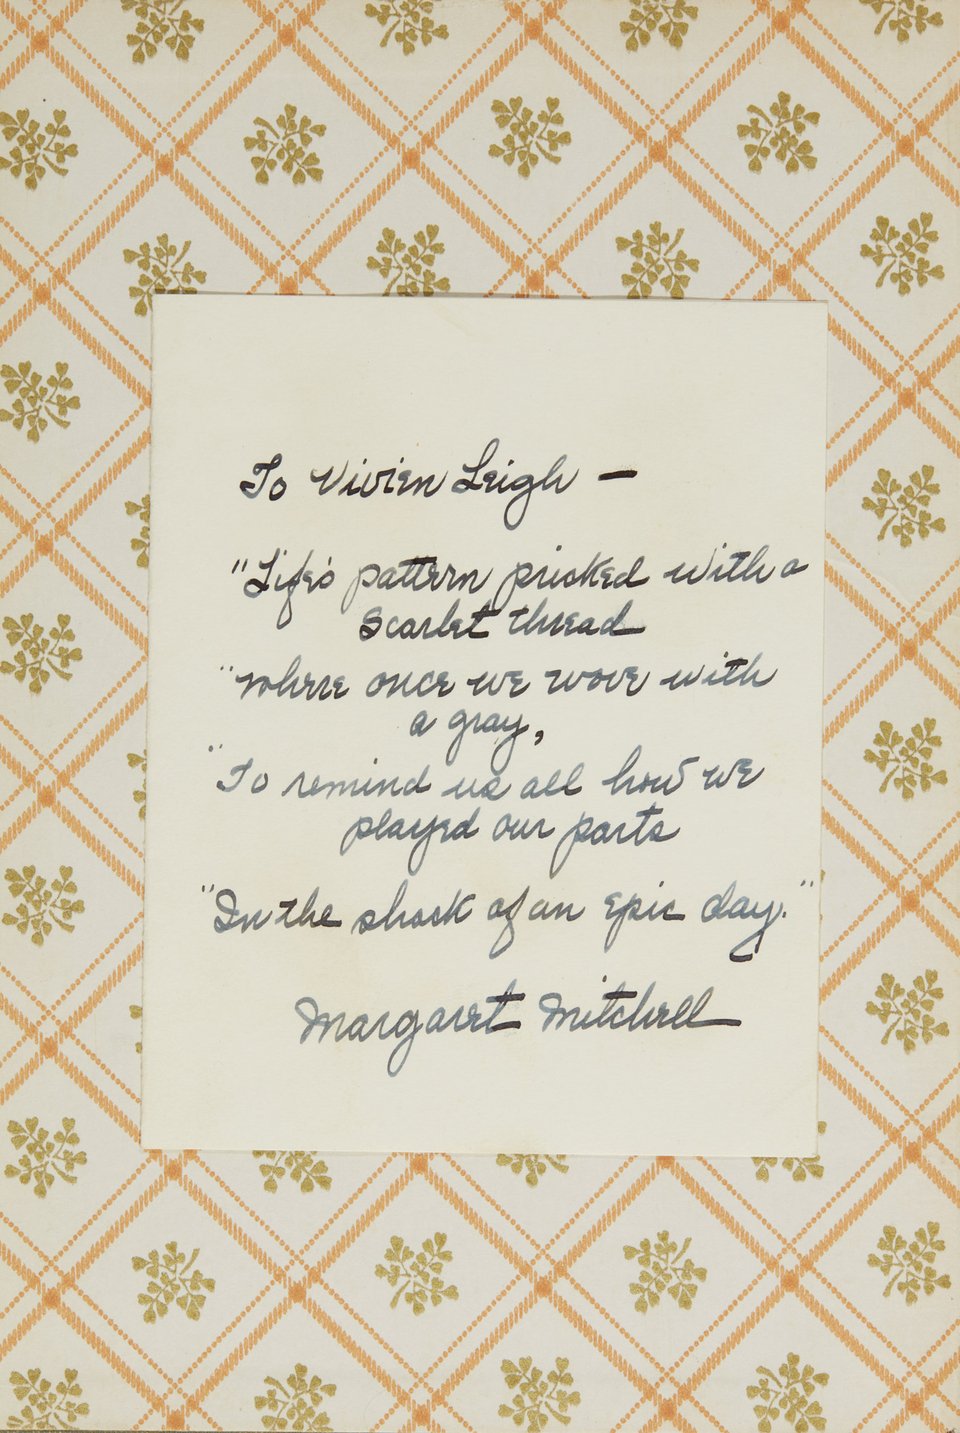 To Vivien Leigh —
"Life's pattern pricked with a
scarlet thread
"where once we wove with
a gray,
"To remind us all how we
played our parts
"In the shock of an epic day."
Margaret Mitchell